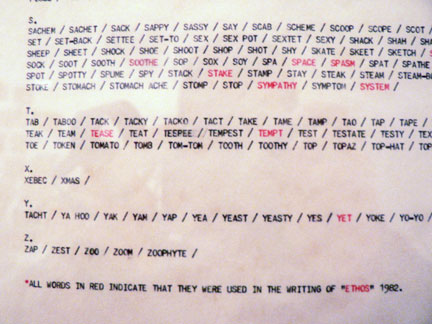 S.
SACHEM / SACHET / SACK / SAPPY / SASSY / SAY / SCAB / SCHEME / SCOOP / SCOPE / SCOT
SET / SET-BACK / SETTEE / SET-TO / SEX / SEX POT / SEXTET / SEXY / SHACK / SHAM / SHA
SHEEP / SHEET / SHOCK / SHOE / SHOOT / SHOP / SHOT / SHY / SKATE / SKEET / SKETCH /
SOCK / SOOT / SOOTH / SOOTHE / SOP / SOX / SOY / SPA / SPACE / SPASM / SPAT / SPATHE
SPOT / SPOTTY / SPUME / SPY / STACK / STAKE / STAMP / STAY / STEAK / STEAM / STEAM-BO
STOKE / STOMACH / STOMACH ACHE / STOMP / STOP / SYMPATHY / SYMPTOM / SYSTEM /
T.
TAB / TABOO / TACK / TACKY / TACKO / TACT / TAKE / TAME / TAMP / TAO / TAP / TAPE /
TEAK / TEAM / TEASE / TEAT / TEEPEE / TEMPEST / TEMPT / TEST / TESTATE / TESTY / TEX
TOE / TOKEN / TOMATO / TOMB / TOM-TOM / TOOTH / TOOTHY / TOP / TOPAZ / TOP-HAT / TOP
X.
XEBEC / XMAS /
Y.
YACHT / YA HOO / YAK / YAM / YAP / YEA / YEAST / YEASTY / YES / YET / YOKE / YO-YO /
Z.
ZAP / ZEST / ZOO / ZOOM / ZOOPHYTE /
*ALL WORDS IN RED INDICATE THAT THEY WERE USED IN THE WRITING OF "ETHOS" 1982.